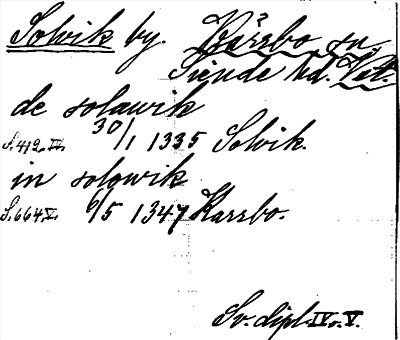 Solvik by. Kärrbo sn
Siende hd. Vstl.
de solawik
S.412 IV. 30/1 1335 Solvik.
in solowik
S.664 V. 6/5 1347 Karrbo.
Sv. dipl. IV o. V.